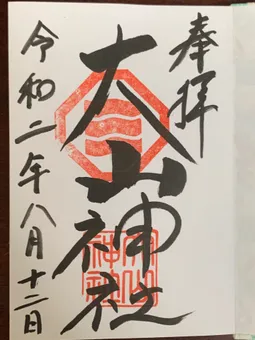 奉拝
大山神社
令和二年八月十二日